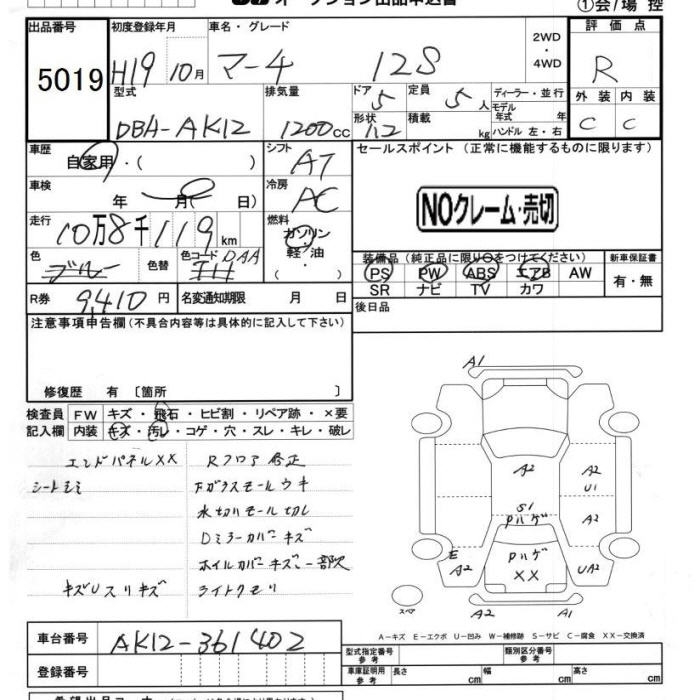 オークション出品申込書
①会場 控
出品番号 5019
初度登録年月 H19 10月
車名・グレード マーチ 12S
2WD・4WD
評価点 R
外装 C 内装 C
型式 DBA-AK12
排気量 1200cc
ドア 5 形状
定員 5人 積載 kg
ディーラー・並行
モデル年式 年
ハンドル 左・右
車歴 自家用・( )
シフト AT
セールスポイント (正常に機能するものに限ります)
車検 年 月( 日)
冷房 AC
NOクレーム・売切
走行 10万8千119km
燃料 ガソリン・軽油・
色 ブルー 色替 色コード DAA
装備品 (純正品に限り○をつけてください)
新車保証書 有・無
PS PW ABS エアB AW
SR ナビ TV カワ
R券 9,410円 名変通知期限 月 日
後日品
注意事項申告欄 (不具合内容等は具体的に記入して下さい)
修復歴 有 〔箇所 〕
検査員記入欄
FW キズ・飛石・ヒビ割・リペア跡・×要
内装 キズ・汚レ・コゲ・穴・スレ・キレ・破レ
エンドパネルXX Rフロア修正
シートシミ Fガラスモールウキ
水切リモール切レ
Dミラーカバーキズ
ホイルカバーキズ 一部欠
キズUスリキズ ライトクモリ
A1
A2 A2 U1
S1 Pハゲ A2
E A2 Pハゲ XX UA2
スペア A2 A1
A-キズ E-エクボ U-凹み W-補修跡 S-サビ C-腐食 XX-交換済
車台番号 AK12-361402
登録番号
型式指定番号 参考
類別区分番号 参考
車庫証明用 参考 長さ cm 幅 cm 高さ cm